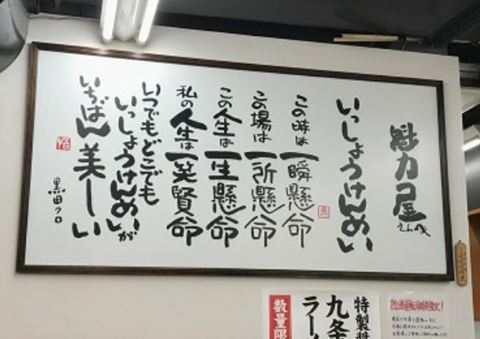 魁力屋
さん江
いっしょうけんめい
この時は一瞬懸命
この場は一所懸命
この人生は一生懸命
私の人生は一笑賢命
いつでもどこでも
いっしょうけんめいが
いちばん美しい
黒田クロ
数量限
特製醤
九条
ラーメ